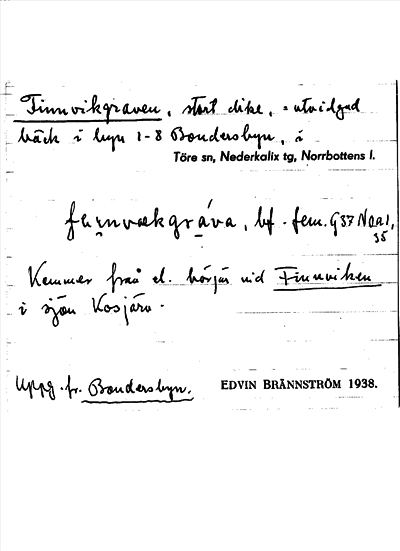 Finnvikgraven, stort dike, = utvidgad
bäck i byn 1-8 Bondersbyn, i
Töre sn, Nederkalix tg, Norrbottens l.
bf. fem.
Kommer från el. börjar vid Finnviken
i sjön Kosjärv.
Uppg. fr. Bondersbyn.
EDVIN BRÄNNSTRÖM 1938.